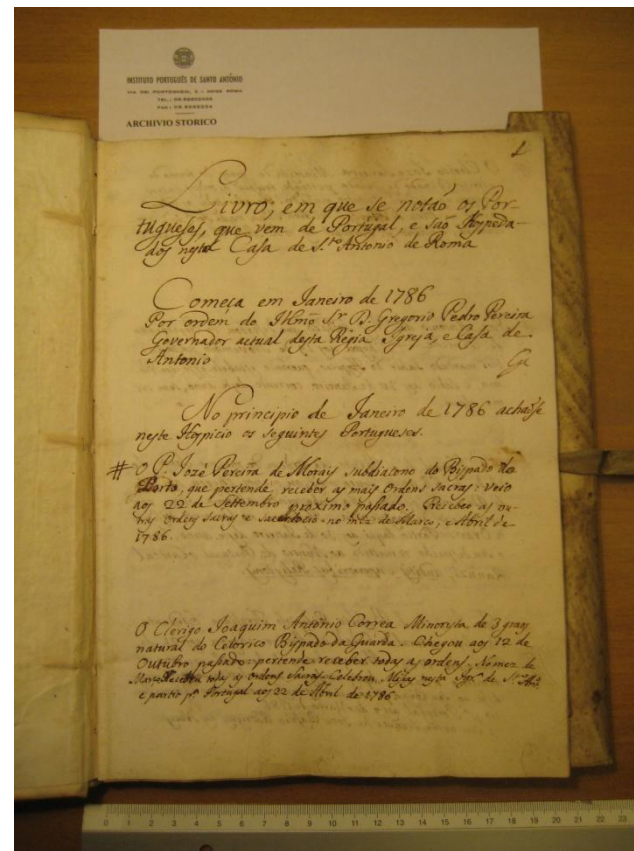 INSTITUTO PORTUGUÊS DE SANTO ANTÓNIO
ROMA
ARCHIVIO STORICO
1
Livro, em que se notaõ os Por-
tugueses, que vem de Portugal, e saõ Hospeda-
dos nesta Casa de S.to Antonio de Roma
Começa em Janeiro de 1786
Por ordem do Illmo Sr. D. Gregorio Pedro Pereira
Governador actual desta Regia Igreja, e Casa de
Antonio
No principio de Janeiro de 1786 achaõse
neste Hospicio os seguintes Portugueses.
# O P. Jozé Pereira de Morais subdiacono do Bispado do
Porto, que pertende receber as mais Ordens sacras: veio
aos 22 de Settembro proximo passado. Recebeo as ou-
tras Ordens sacras e sacerdocio no mez de Março, e Abril de
1786.
O Clerigo Joaquim Antonio Correa Minorista de 3 graos
natural de Celorico Bispado da Guarda. Chegou aos 12 de
Outubro passado: pertende receber todas as ordens. No mez de
Março recebeu todas as Ordens Sacras. Celebrou Missas nesta Igr.a de S.to Ant.o
e partio p.a Portugal aos 22 de Abril de 1786.
0 1 2 3 4 5 6 7 8 9 10 11 12 13 14 15 16 17 18 19 20 21 22 23